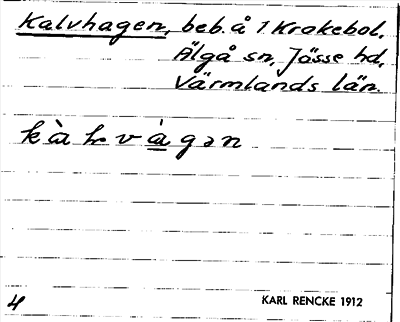 Kalvhagen, beb. å 1 Krakebol,
Älgå sn, Jösse hd,
Värmlands län.
4
KARL RENCKE 1912